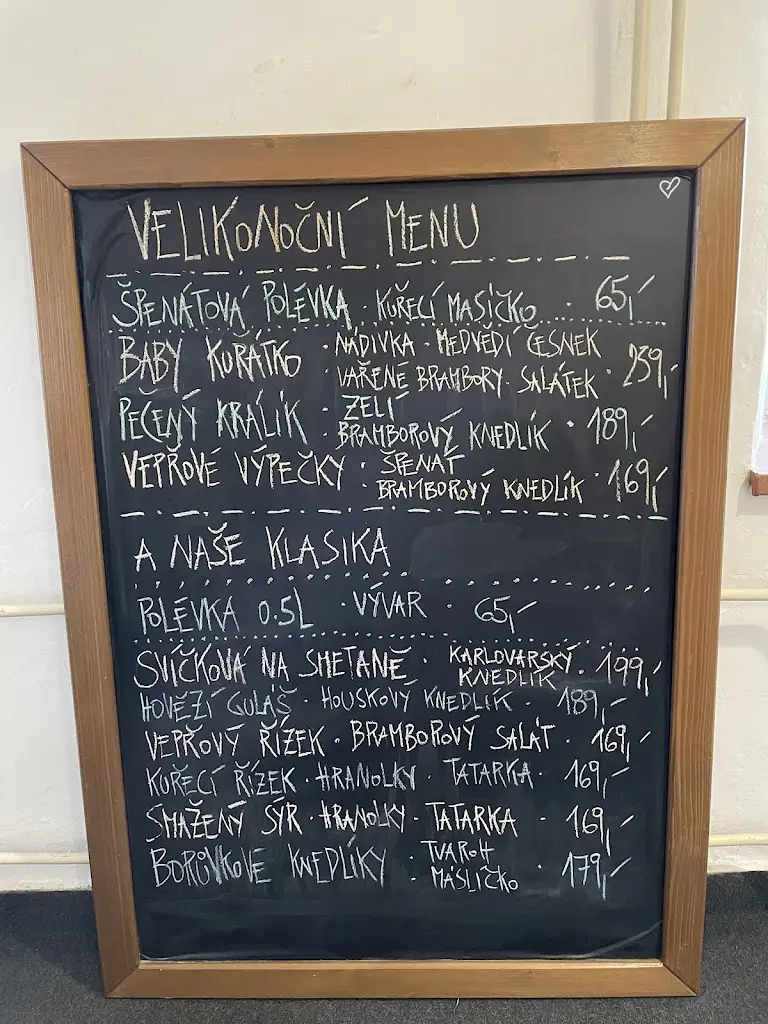 VELIKONOČNÍ MENU
ŠPENÁTOVÁ POLÉVKA · KUŘECÍ MASÍČKO · 65,-
BABY KUŘÁTKO · NÁDIVKA · MEDVĚDÍ ČESNEK
VAŘENÉ BRAMBORY · SALÁTEK · 239,-
PEČENÝ KRÁLÍK · ZELÍ
BRAMBOROVÝ KNEDLÍK · 189,-
VEPŘOVÉ VÝPEČKY · ŠPENÁT
BRAMBOROVÝ KNEDLÍK · 169,-
A NAŠE KLASIKA
POLÉVKA 0.5L · VÝVAR · 65,-
SVÍČKOVÁ NA SMETANĚ · KARLOVARSKÝ
KNEDLÍK · 199,-
HOVĚZÍ GULÁŠ · HOUSKOVÝ KNEDLÍK · 189,-
VEPŘOVÝ ŘÍZEK · BRAMBOROVÝ SALÁT · 169,-
KUŘECÍ ŘÍZEK · HRANOLKY · TATARKA · 169,-
SMAŽENÝ SÝR · HRANOLKY · TATARKA · 169,-
BORŮVKOVÉ KNEDLÍKY · TVAROH
MÁSLÍČKO · 179,-